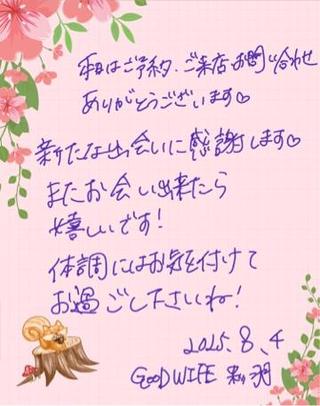 本日はご予約、ご来店、お問い合わせ
ありがとうございます♡
新たな出会いに感謝します♡
またお会い出来たら
嬉しいです!
体調にはお気を付けて
お過ごし下さいね!
2025.8.4
GOOD WIFE